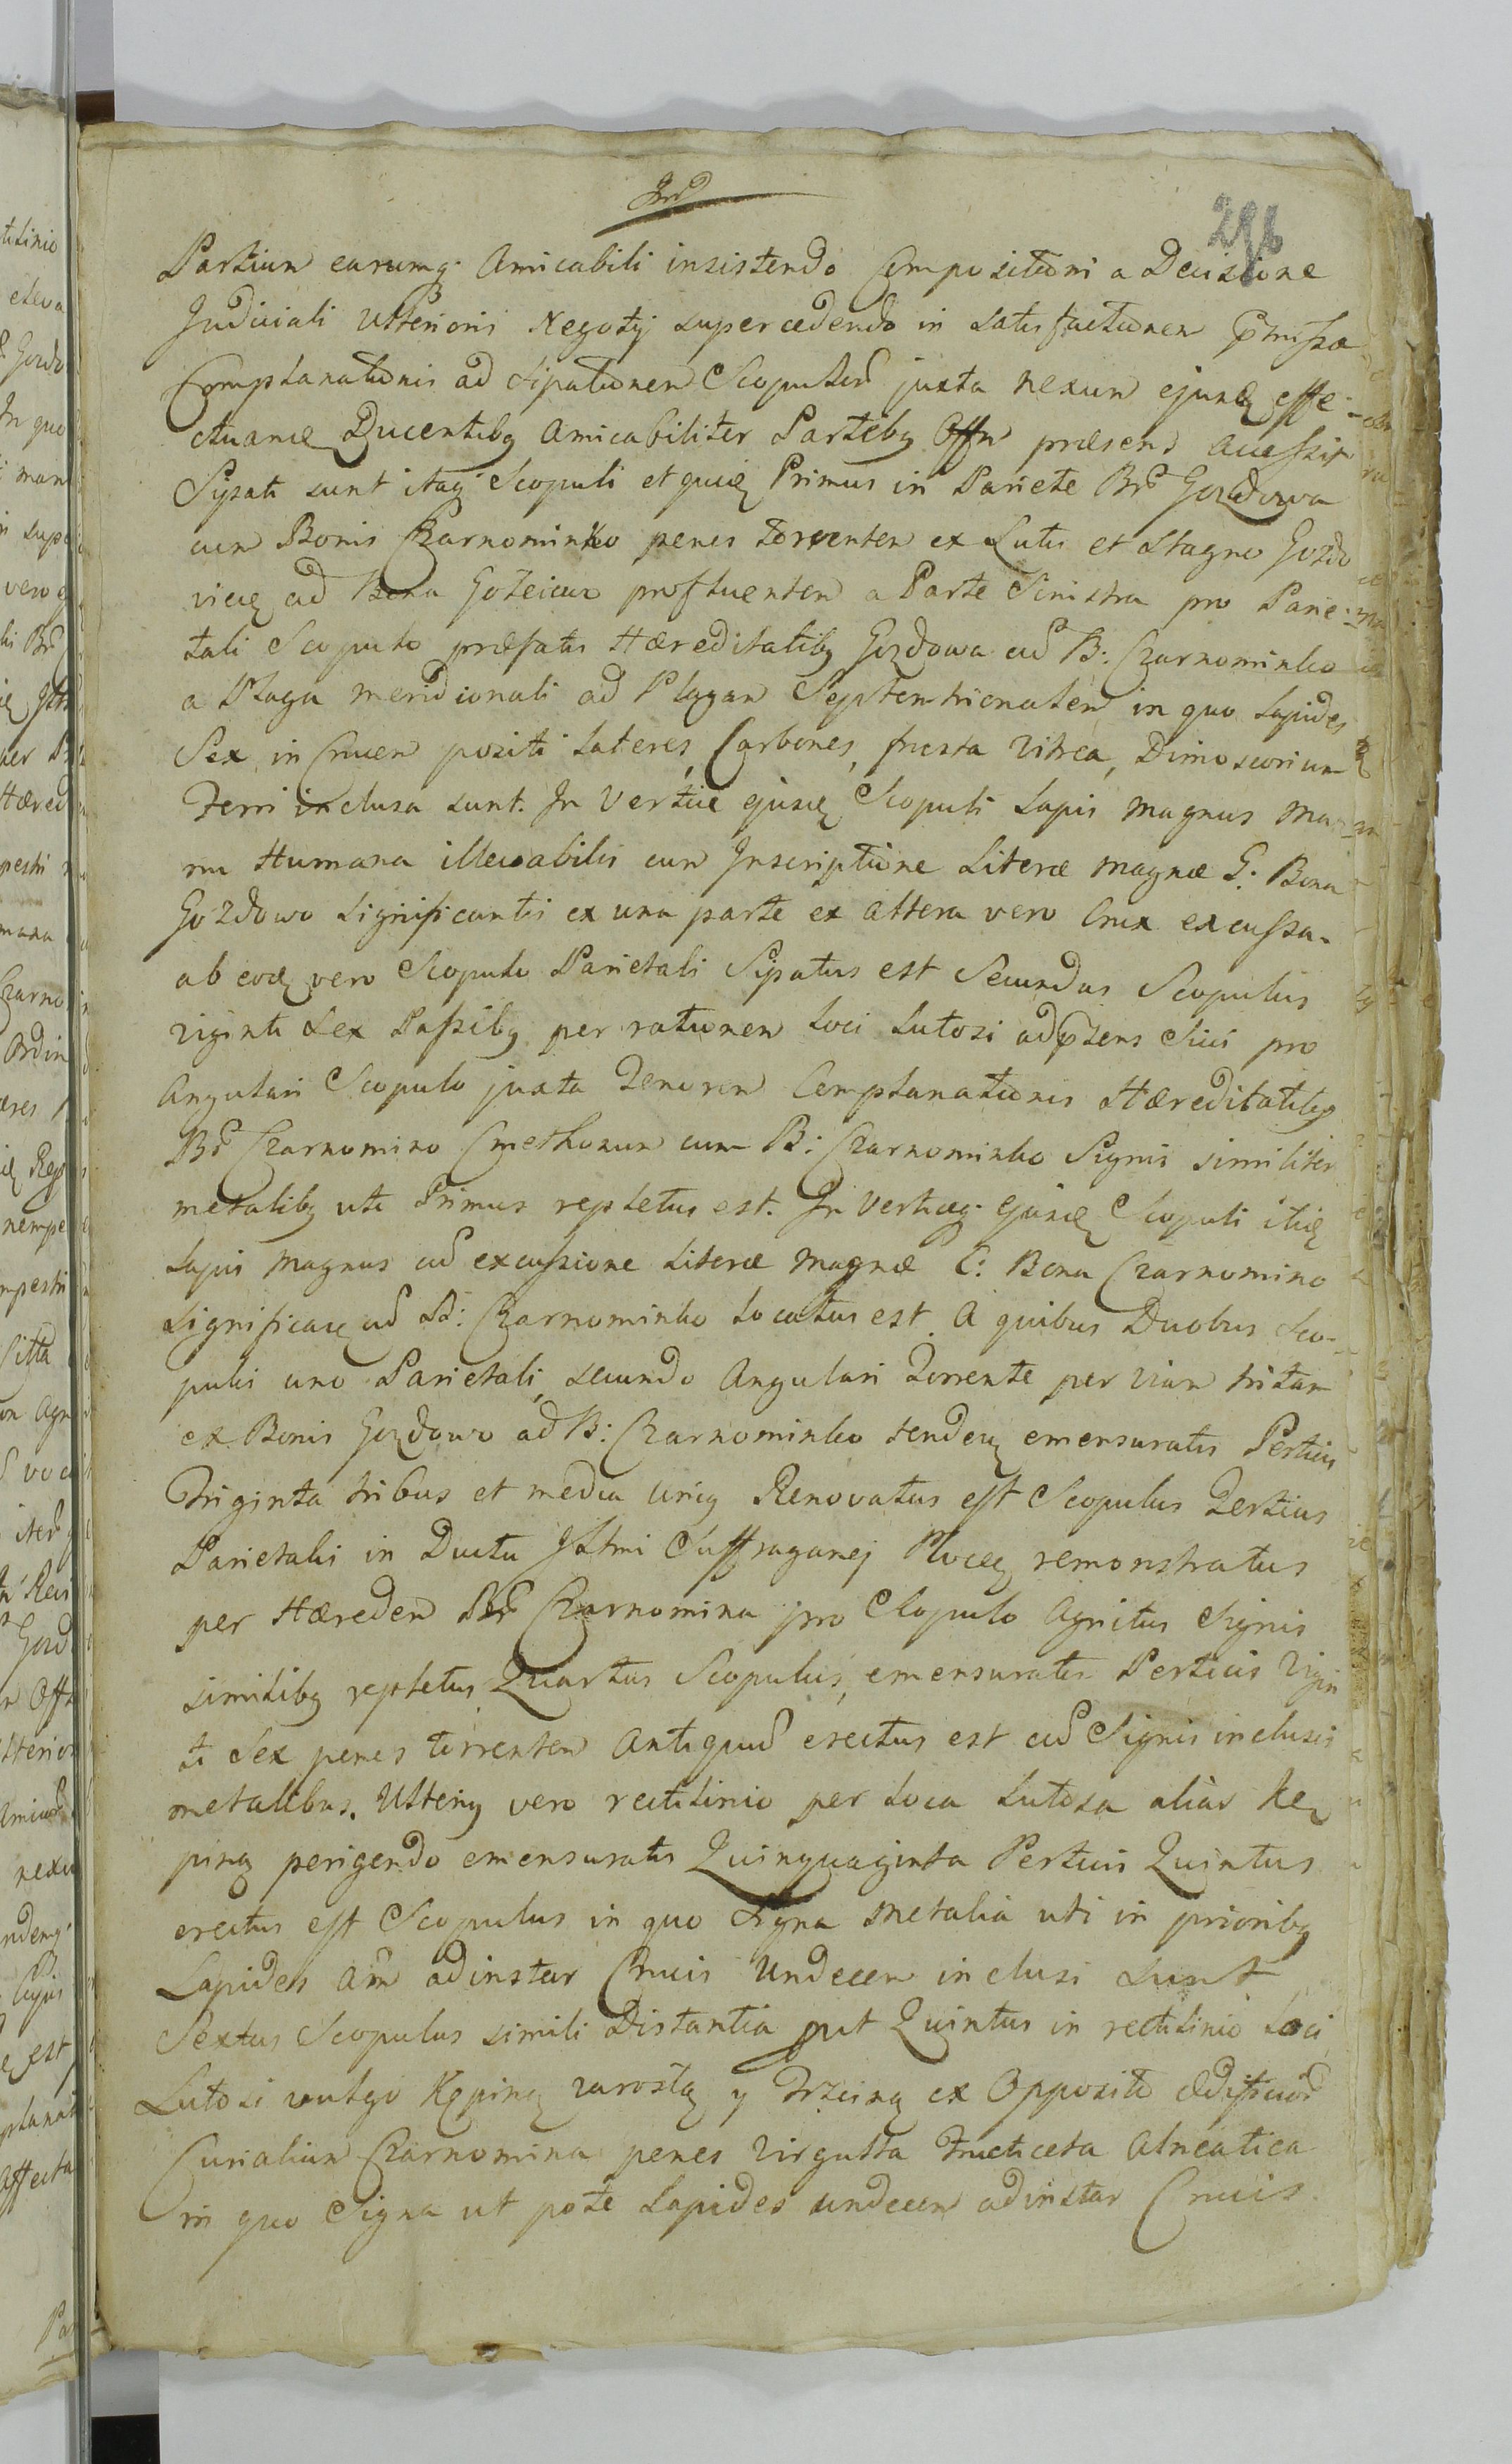 Jnd
296
Partium earumq. Amicabili insistendo Compositioni a Decisione
Judiciali Ulterioris Negotij supercedendo in satisfactionem
Complanationis ad sipationem Scopulorũ juxta nexum ejusd effe-
Ducentibq Amicabiliter Partibq Offm præsens accessit
Sypati sunt itaq Scopuli et Primus in Pariete Brũ Gozdowa
cum Bonis Czarnominko penes torrentem ex Lutis et Stagno Gozdo
ad Bona Goteicwo profluentem a Parte Sinistra pro Parie-
tali Scopulo præfatis Hæreditatibq Gozdowa cũ B: Czarnominko
a Plaga meridionali ad Plagam Septentrionalem, in quo Lapides
Sex in Crucem positi Lateres, Carbones, frusta Vitrea,
Ferri inclusa sunt. In Vertice ejusd Scopuli Lapis magnus ma-
nu Humana illevabilis cum Inscriptione Literæ magnæ G: Bona
Gozdowo Significantis ex una parte ex altera vero Crux excussa.
ab eod vero Scopulo Parietali Sipatus est Secundus Scopulus
viginti Sex Passibq per rationem Loci Lutosi pro
Angulari Scopulo juxta Tenorem Complanationis Hæreditatibq
Brũ Czarnomino Cmethonum cum B: Czarnominko Signis similiter
metalibq uti Primus repletus est. In Verticeq. ejusd Scopuli itid
Lapis magnus cũ excussione Literæ magnæ C: Bona Czarnomino
cũ B: Czarnominko locatus est. A quibus Duobus Sco-
pulis uno Parietali, secundo Angulari Torrente per viam tritam
ex Bonis Gozdowo ad B: Czarnominko emensuratis Perticis
Triginta tribus et media Renovatus est Scopulus Tertius
Parietalis in Ductu Illmi Suffraganej remonstratus
per Hæredem Brũ Czarnomina pro Scopulo Agnitus Signis
similibq repletus Quartus Scopulus, emensuratis Perticis Vigin
ti Sex penes torrentem Antiquũ erectus est cũ Signis inclusis
metalibus. Ulteriq vero rectilinio per Loca Lutosa alias Kę
piną perigendo emensuratis Quinquaginta Perticis Quintus
erectus est Scopulus in quo Signa metalia uti in prioribq
Lapides adinstar Crucis Undecem inclusi sunt
Sextus Scopulus simili Distantia put Quintus in rectilinio Loci
Lutosi vulgo Kępiną zarostą y Trzciną ex Opposito
Curialium Czarnomina penes Virgulta Alneatica
in quo Signa ut pote Lapides undecem adinstar Crucis